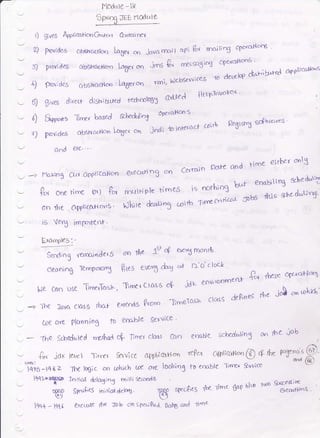 Module-IX
Spring JEE Module
1) gives ApplicationContext Container
2) provides abstraction Layer on Java mail api for mailing operations
3) provides abstraction Layer on Jms for messaging operations
4) provides abstraction Layer on rmi, webservices to develop distributed applications
5) gives direct distributed technology called HttpInvoker.
6) Supports Timer based scheduling operations.
7) provides abstraction Layer on Jndi to interact with Registry softwares.
and etc...
→ Making our application executing on certain Date and time either only
for one time or for multiple times is nothing but enabling scheduling
on the applications. while dealing with Time critical jobs this scheduling
is very important.
Examples:-
Sending remainders on the 1st of every month
cleaning Temporary files every day at 12'o'clock
we can use TimerTask, Timer class of jdk environment for these operations
→ The Java class that extends from TimerTask class defines the job on which
we are planning to enable service.
→ The scheduled method of Timer class can enable scheduling on the job
for jdk level Timer service application refer application of the pageno's 67
and 68
Lines:
1975-1982 The logic on which we are looking to enable Timer service
Initial delaying milli seconds
specifies initial delay. specifies the time gap b/w two successive
executions.
1994-1996 execute the Job on specified Date and time